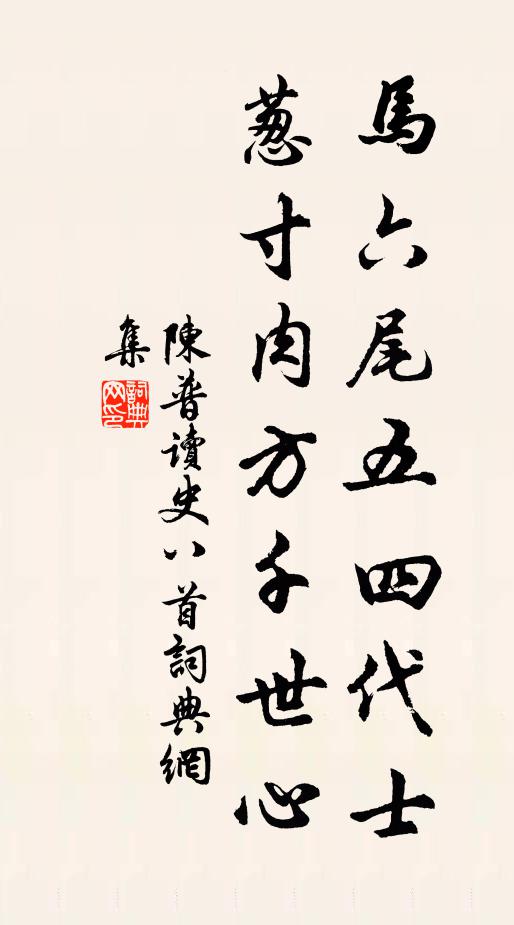 馬六尾五四代士
葱寸肉方千世心
陳普讀史八首詞典網
集
詞典
网印